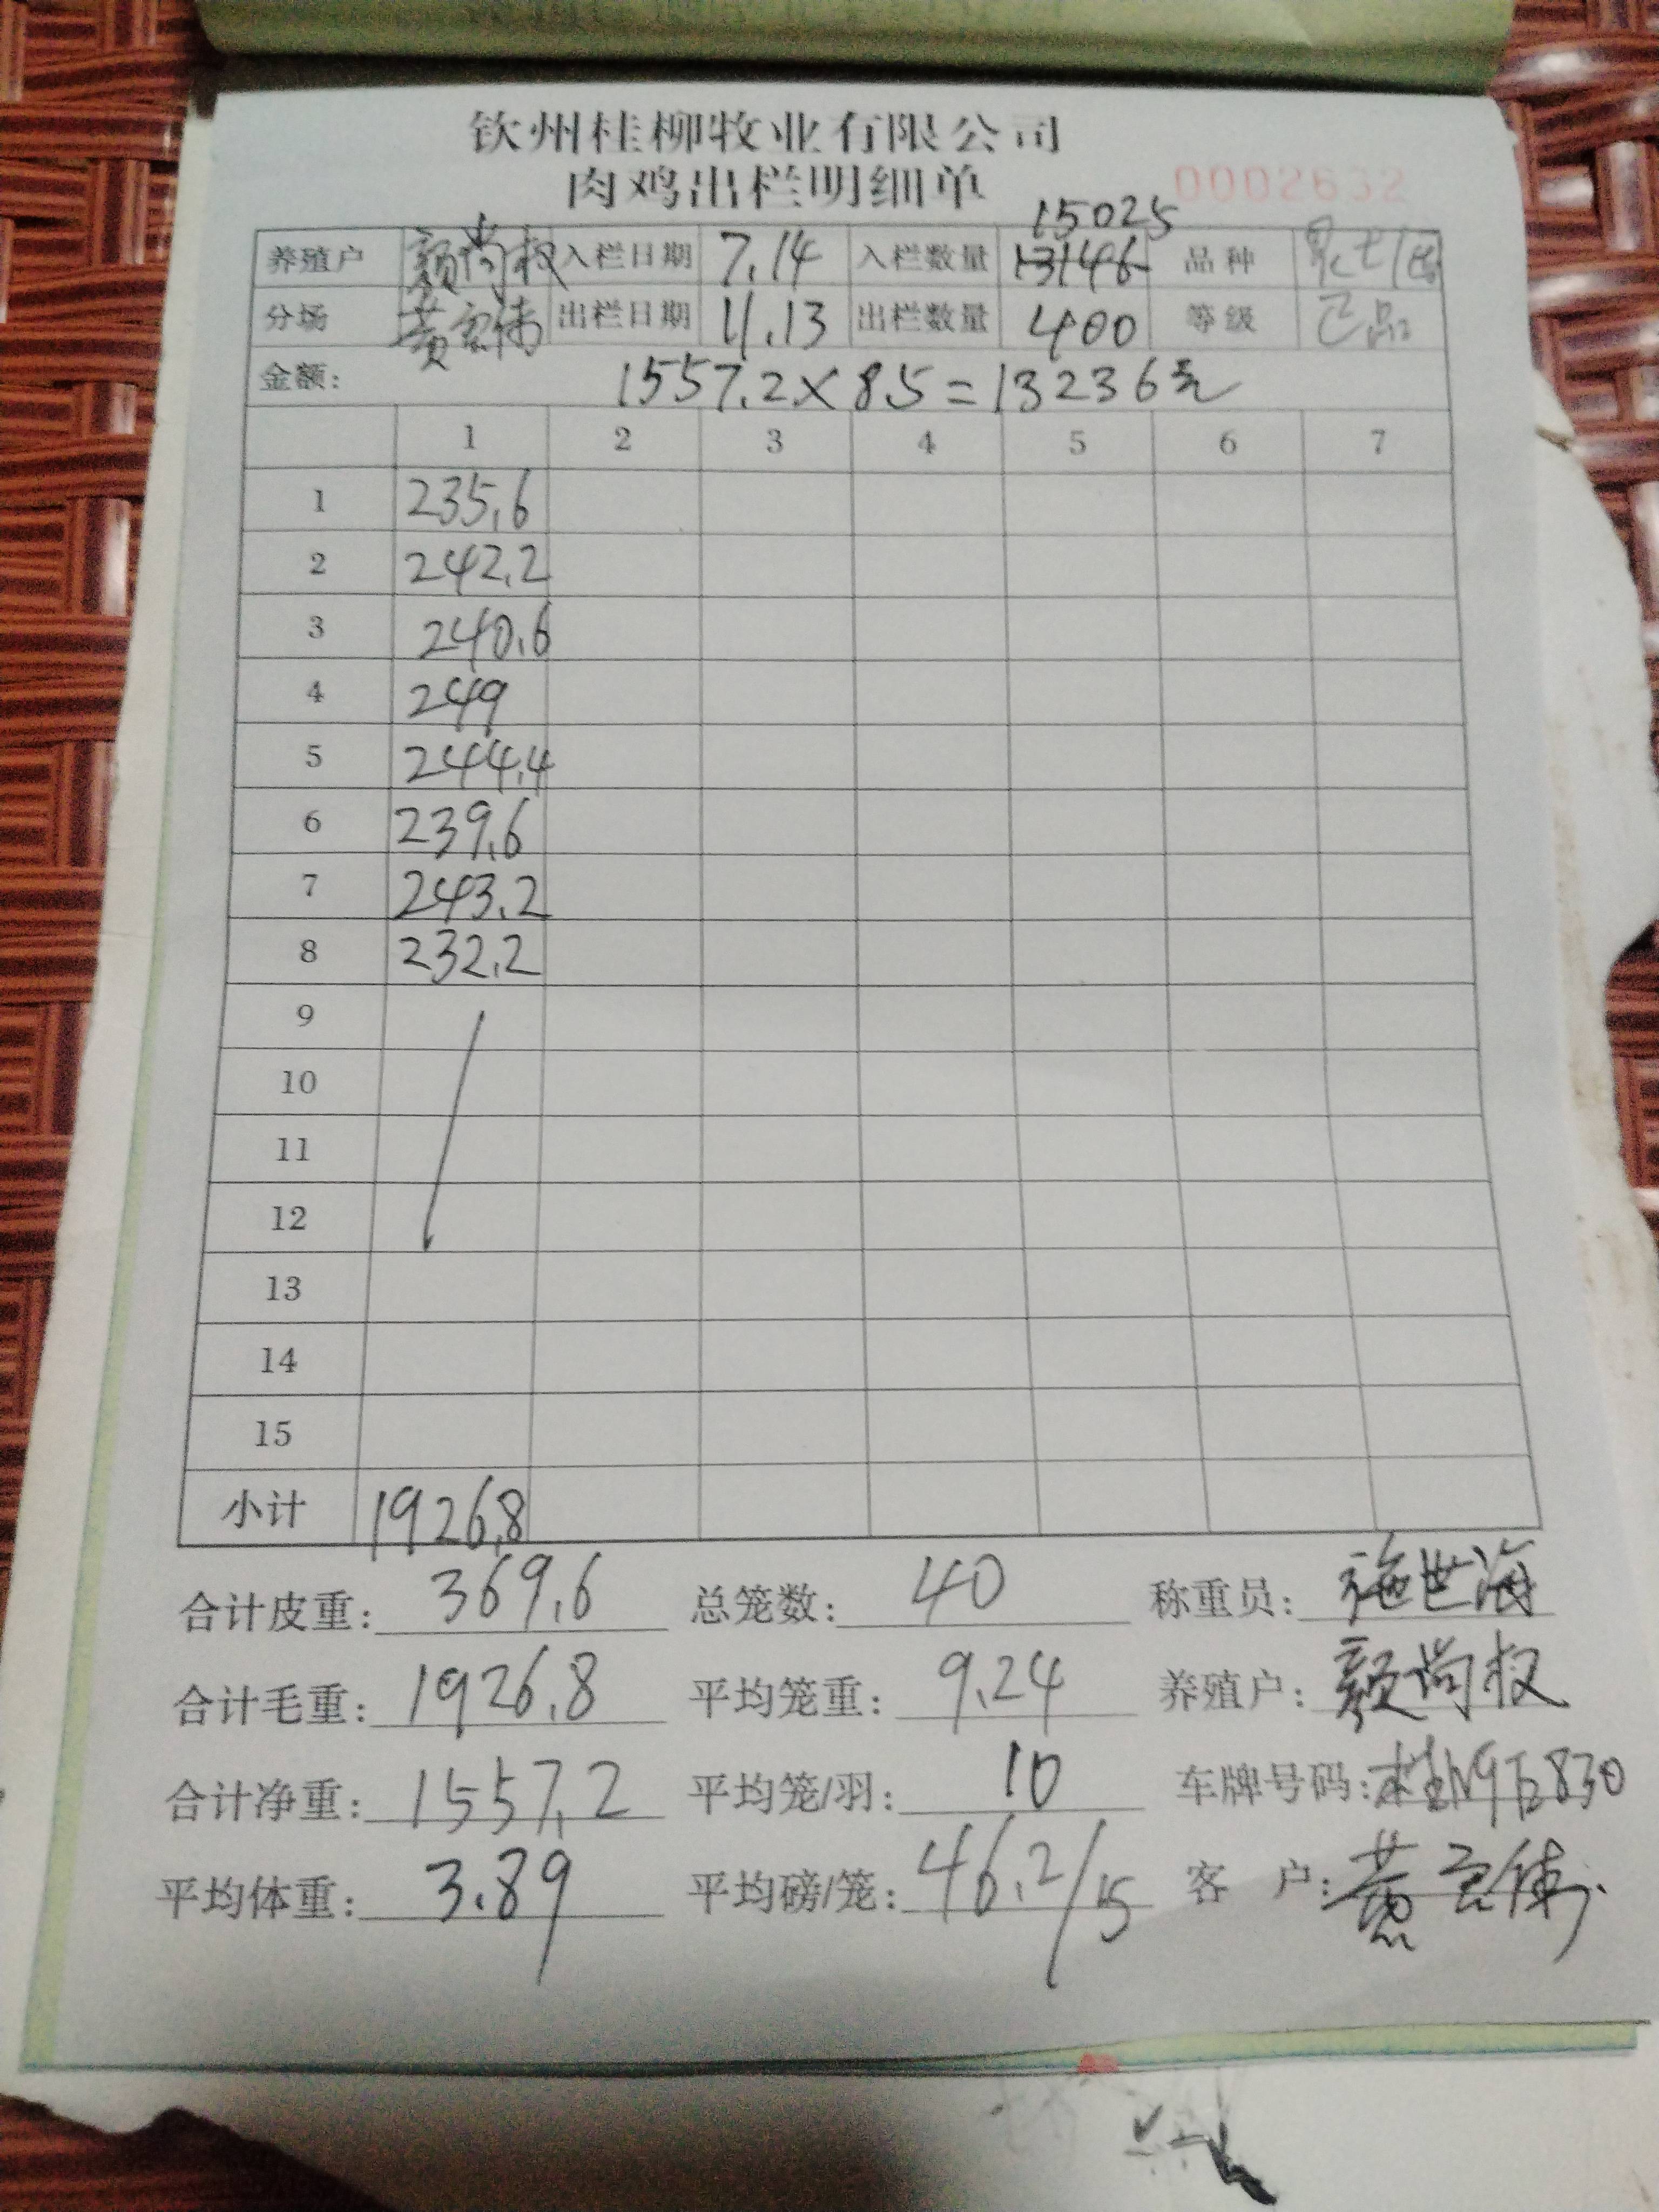 钦州桂柳牧业有限公司
肉鸡出栏明细单 0002632
15025
养殖户 颜尚权 入栏日期 7.14 入栏数量 13146 品种
分场 出栏日期 11.13 出栏数量 400 等级
金额: 1557.2×8.5=13236元
1 2 3 4 5 6 7
1 235.6
2 242.2
3 240.6
4 249
5 244.4
6 239.6
7 243.2
8 232.2
9
10
11
12
13
14
15
小计 1926.8
合计皮重: 369.6 总笼数: 40 称重员: 施世海
合计毛重: 1926.8 平均笼重: 9.24 养殖户: 颜尚权
合计净重: 1557.2 平均笼/羽: 10 车牌号码:
平均体重: 3.89 平均磅/笼: 46.2/5 客 户: